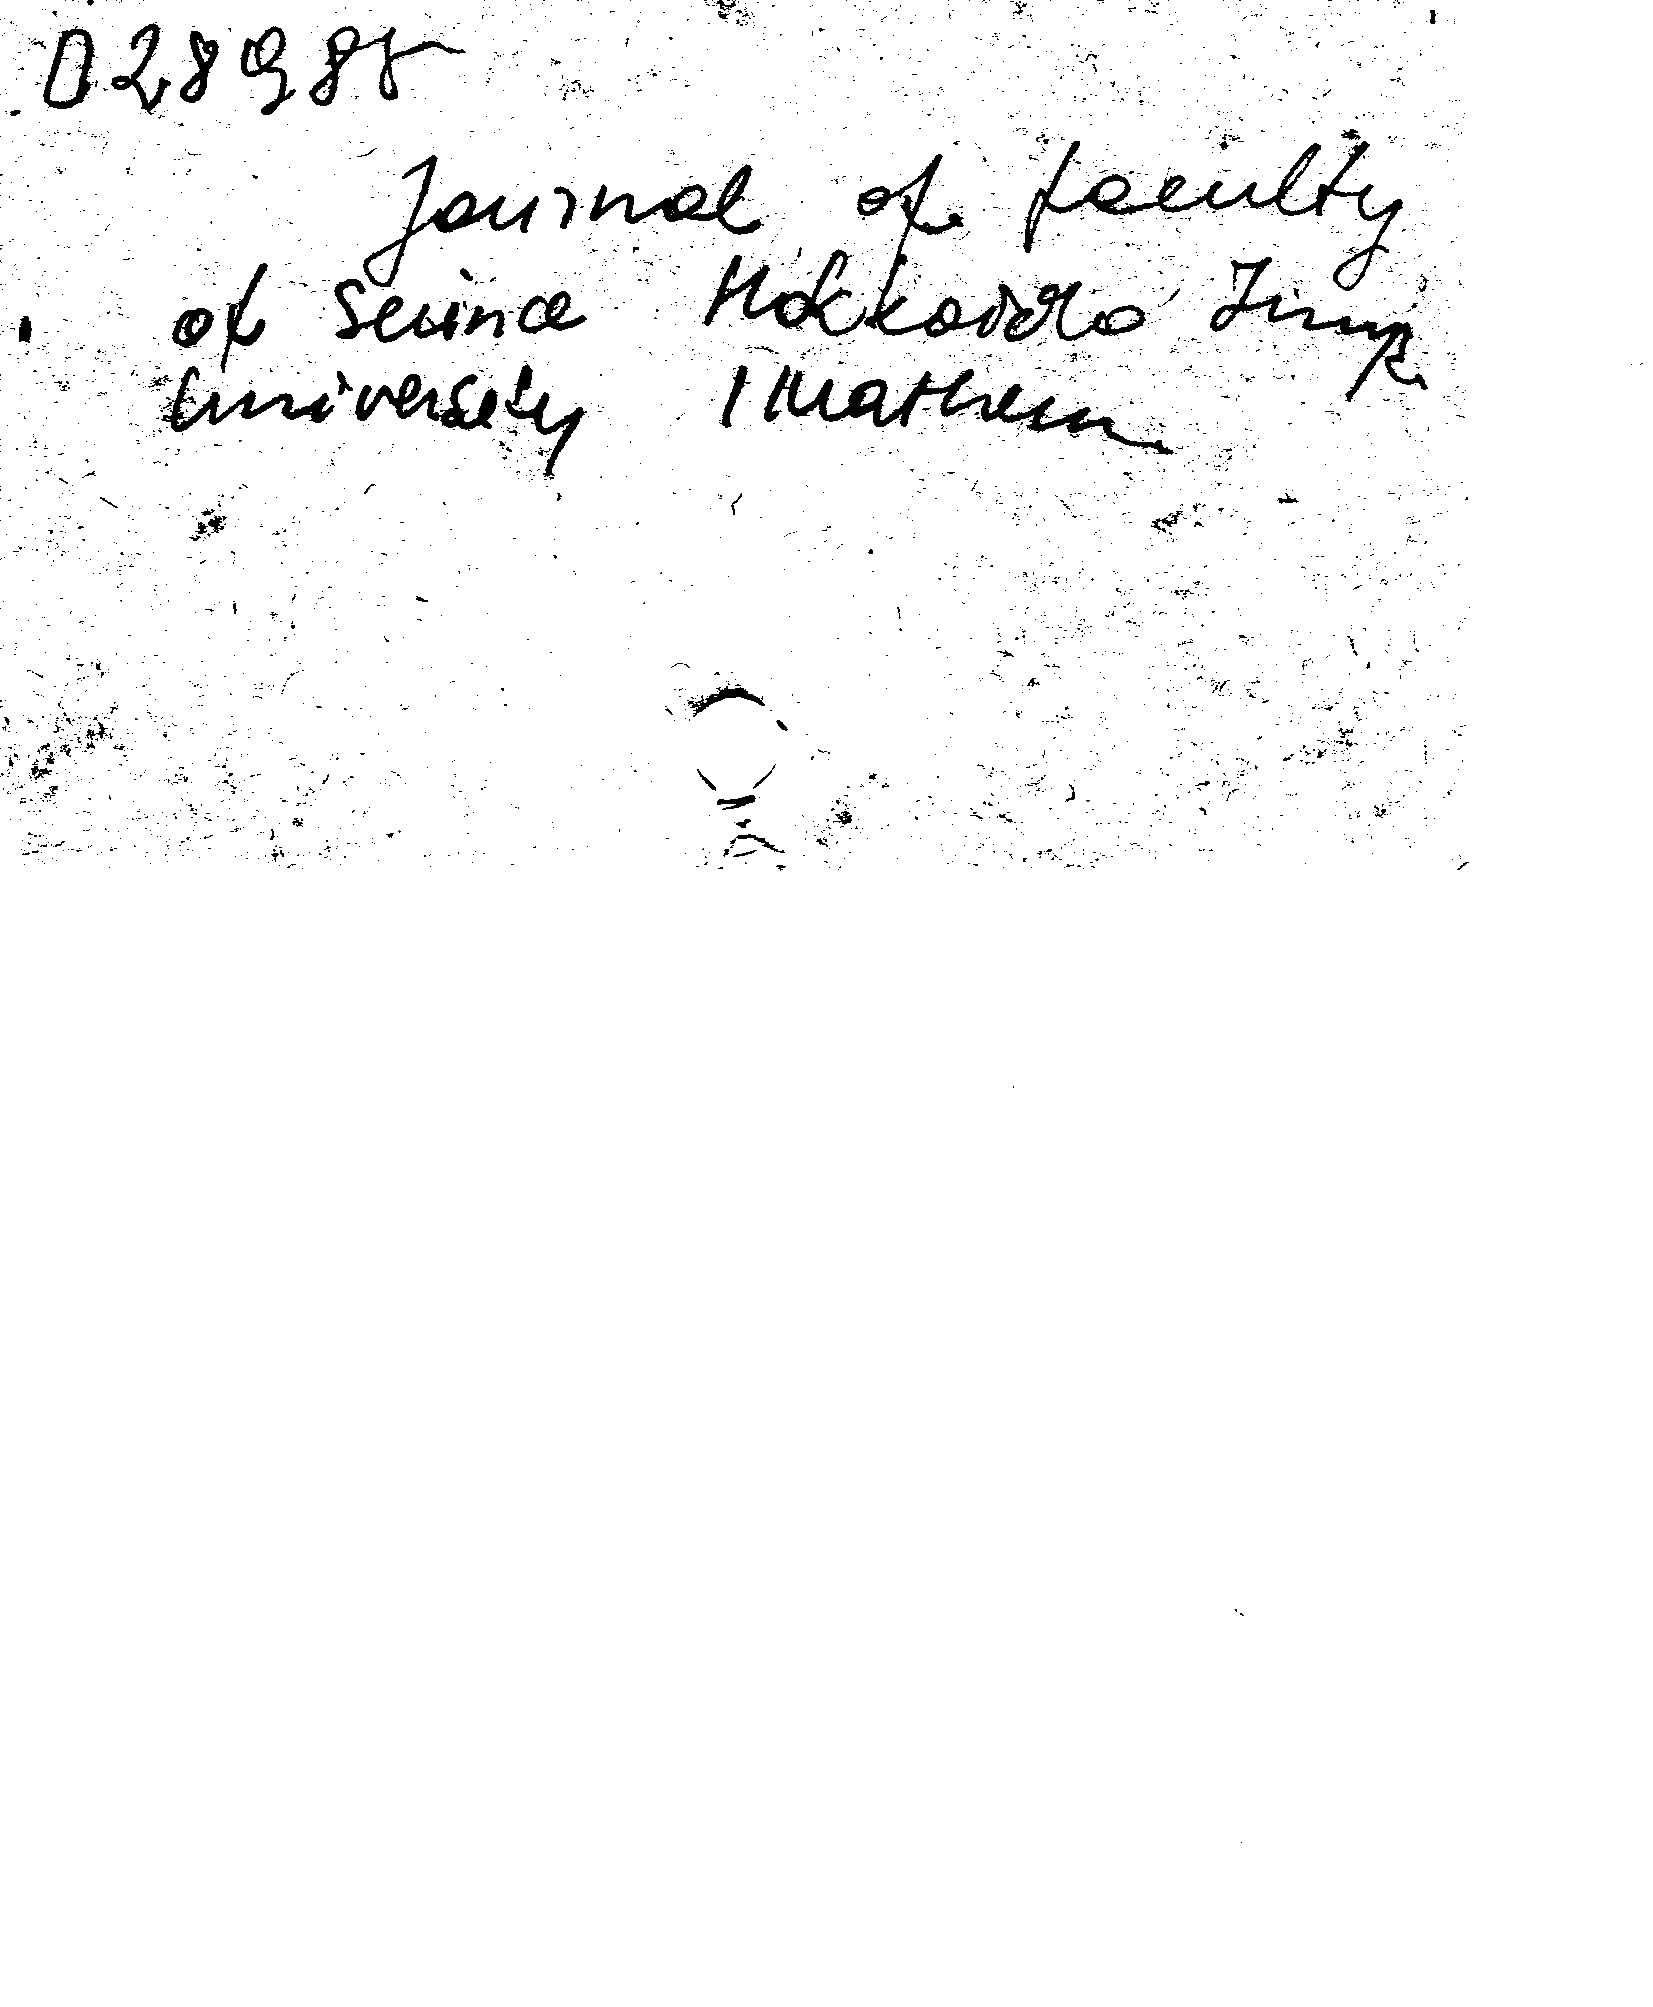 D28985
Journal of faculty
of Science Hokkaido Imp.
University I Mathem